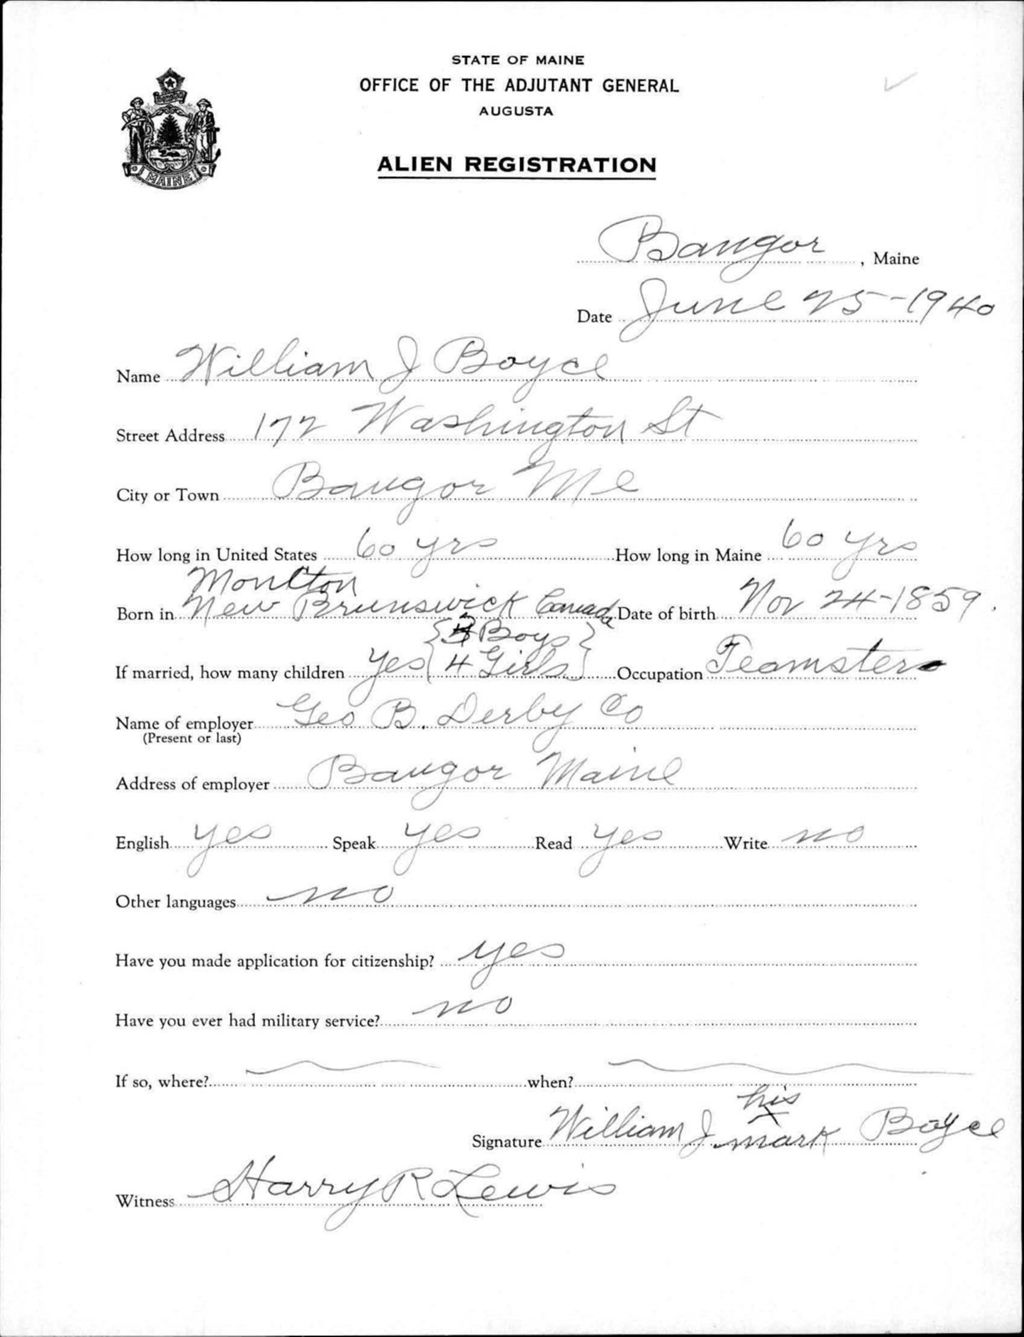 STATE OF MAINE
OFFICE OF THE ADJUTANT GENERAL
AUGUSTA
ALIEN REGISTRATION
MAINE
Bangor, Maine
Date June 25-1940
Name William J Boyce
Street Address 172 Washington St
City or Town Bangor Me
How long in United States 60 yrs How long in Maine 60 yrs
Moulton
Born in New Brunswick Canada Date of birth Nov 24-1859.
{3 Boys}
If married, how many children yes {4 Girls} Occupation Teamster
Name of employer Geo B. Derby Co
(Present or last)
Address of employer Bangor Maine
English yes Speak yes Read yes Write no
Other languages no
Have you made application for citizenship? yes
Have you ever had military service? no
If so, where? when?
his
Signature William J X mark Boyce
Witness Harry R Lewis